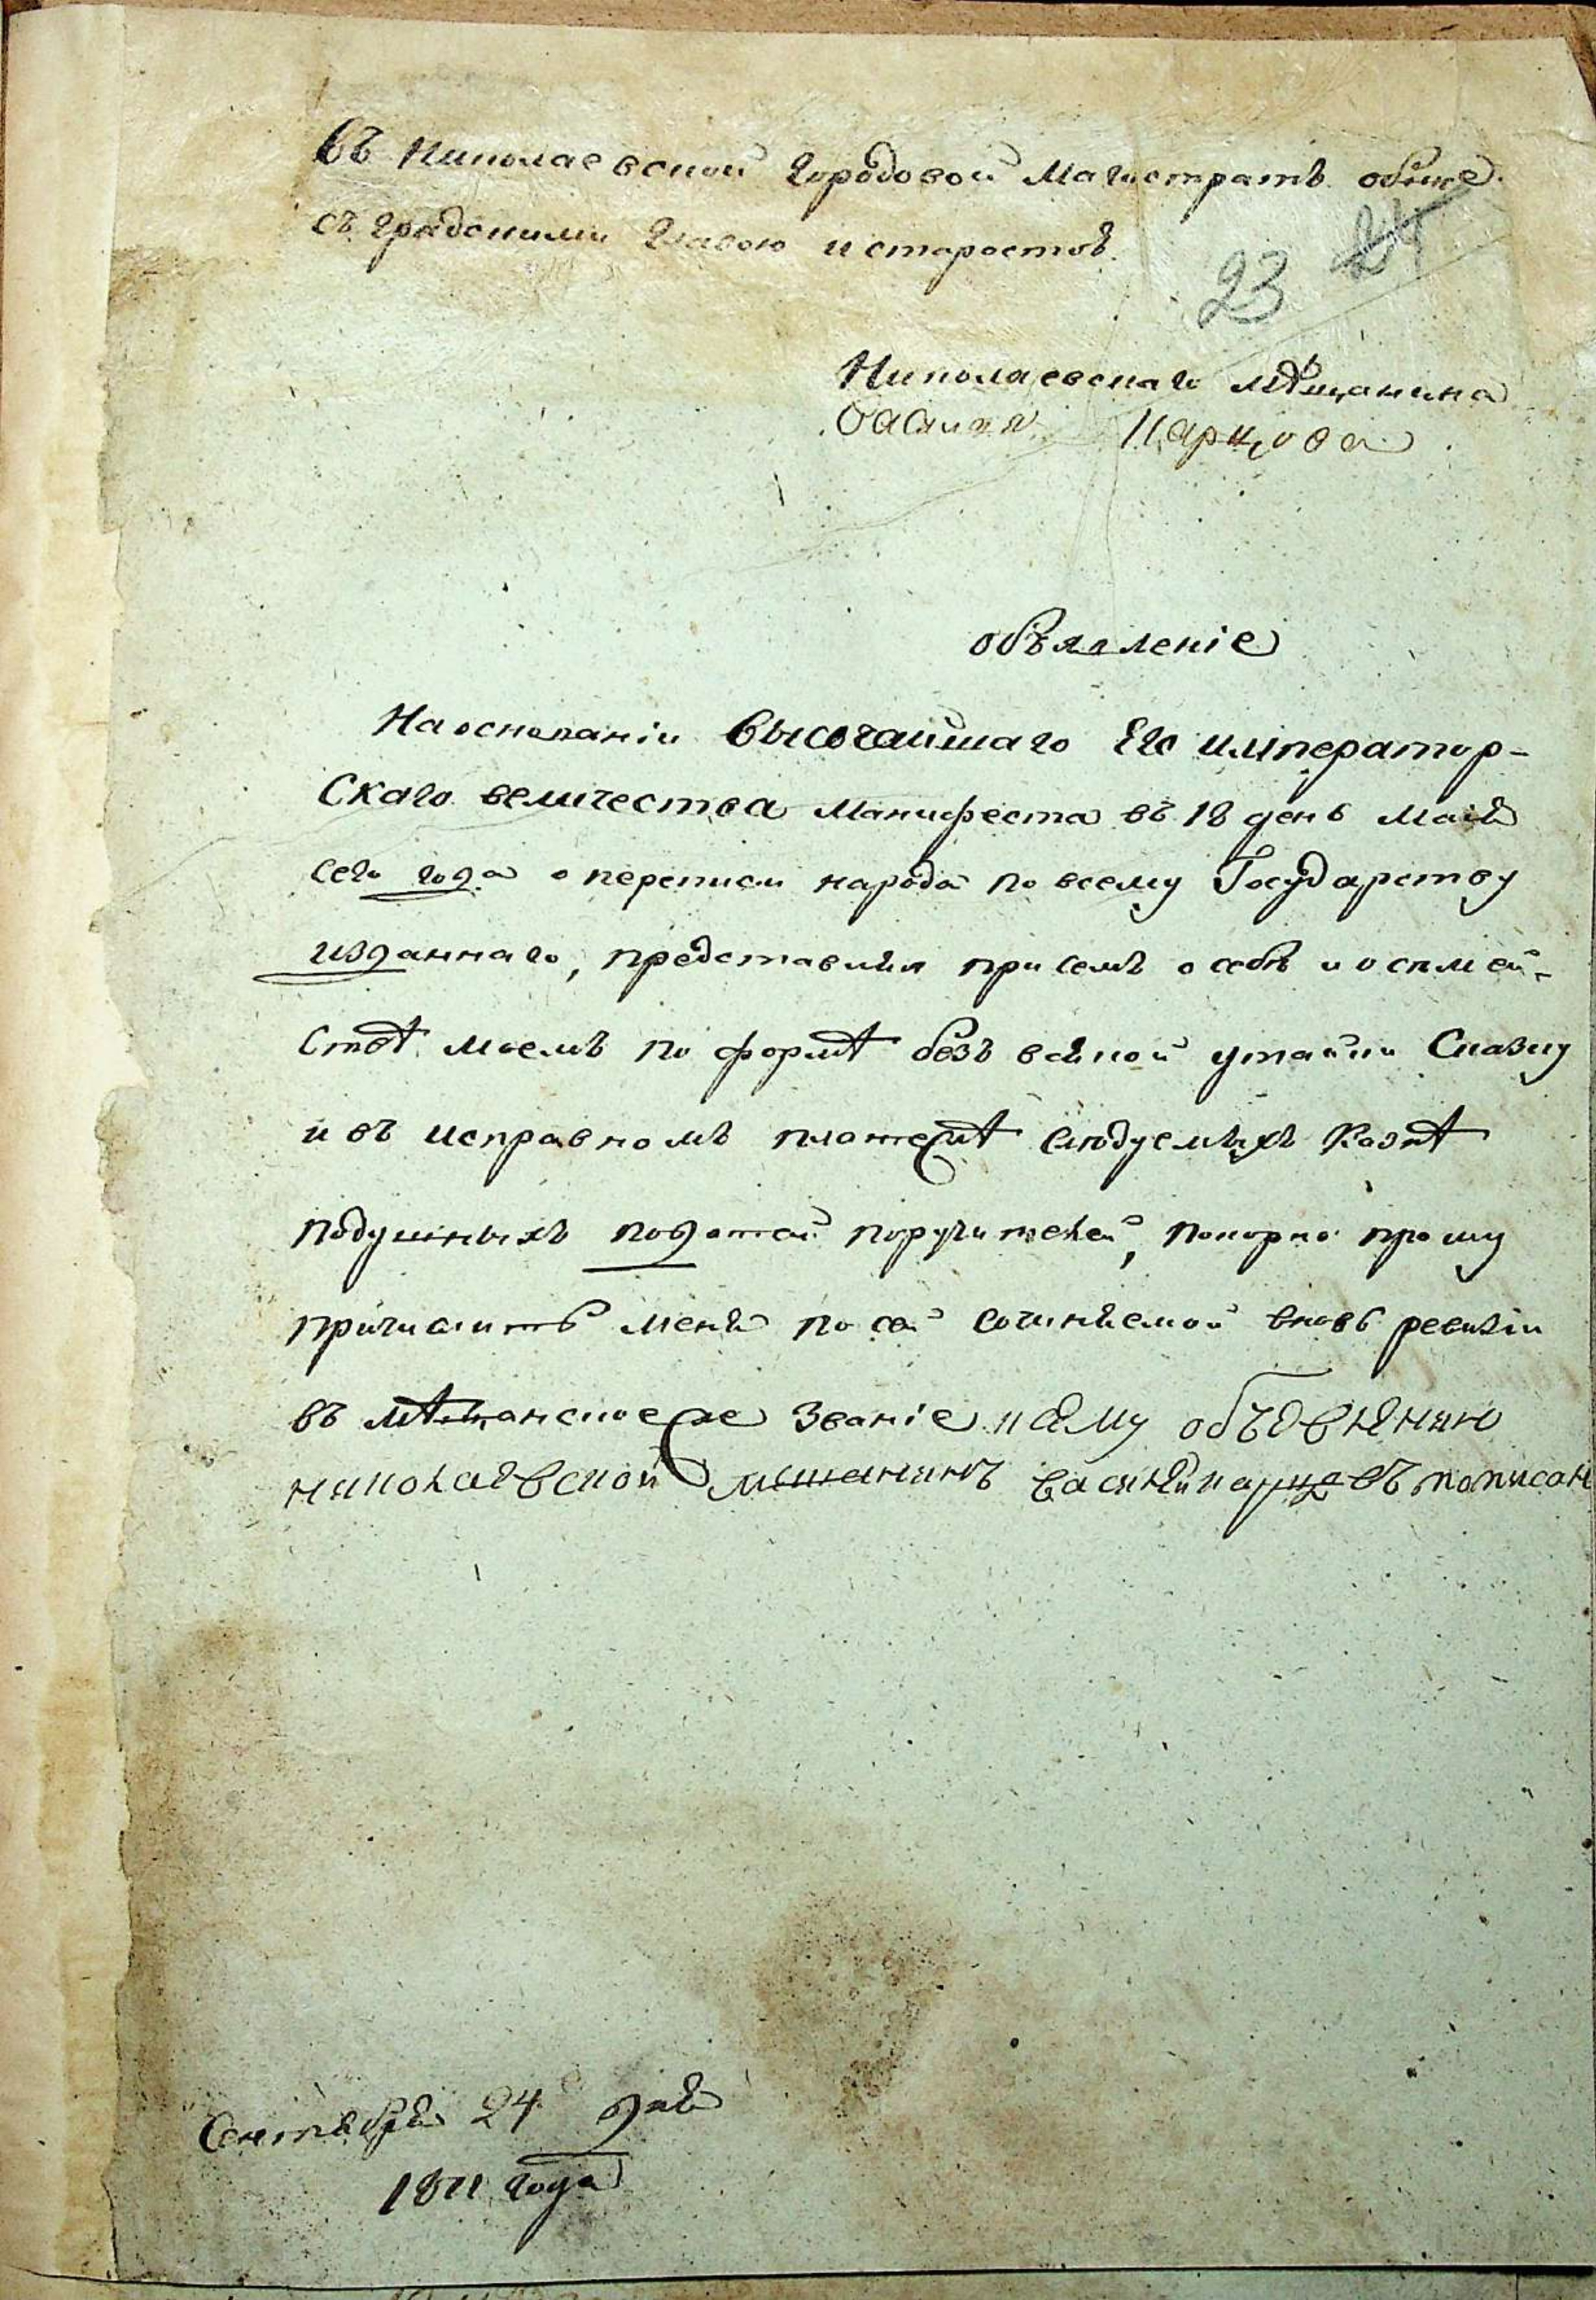 Въ Николаевской Городовой Магистратъ обще
съ градскими Главою и старостов
23 24
Николаевскаго мѣщанина
Василия Карцова
объявленіе
На основаніи Высочайшаго Его император-
Скаго величества Манифеста въ 18 день Маия
сего года о переписи народа по всему Государству
изданнаго, представляя при семъ о себѣ и о семей-
ствѣ моемъ по формѣ безъ всякой утайки Сказку
и въ исправномъ платежѣ слюдуемыхъ Казнѣ
подушныхъ податей поручителей, покорно прошу
причислить меня по сей сочиняемой вновь ревизіи
въ мѣщанское же званіе къ сему объевлянию
николаевской мещанинъ василяй карцовъ подписал
Сентября 24 дня
1811 года